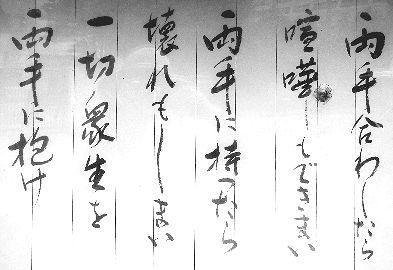 両手合わしたら
喧嘩もできまい
両手に持つたら
壊れもしまい
一切衆生を
両手に抱け